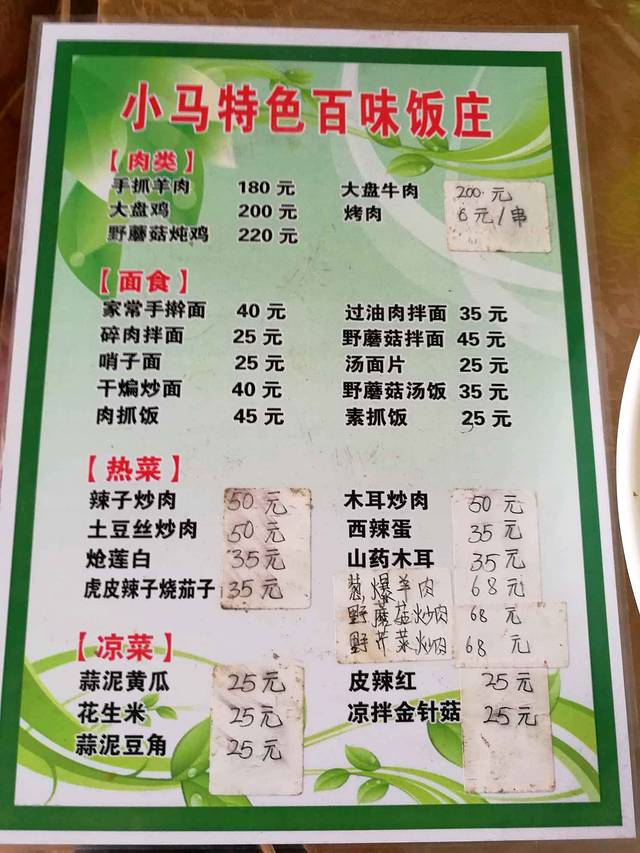 小马特色百味饭庄
【肉类】
手抓羊肉 180元 大盘牛肉 200.元
大盘鸡 200元 烤肉 6元/串
野蘑菇炖鸡 220元
【面食】
家常手擀面 40元 过油肉拌面 35元
碎肉拌面 25元 野蘑菇拌面 45元
哨子面 25元 汤面片 25元
干煸炒面 40元 野蘑菇汤饭 35元
肉抓饭 45元 素抓饭 25元
【热菜】
辣子炒肉 50元 木耳炒肉 50元
土豆丝炒肉 50元 西辣蛋 35元
炝莲白 35元 山药木耳 35元
虎皮辣子烧茄子 35元 葱爆羊肉 68元
野蘑菇炒肉 68元
野芹菜炒肉 68元
【凉菜】
蒜泥黄瓜 25元 皮辣红 25元
花生米 25元 凉拌金针菇 25元
蒜泥豆角 25元